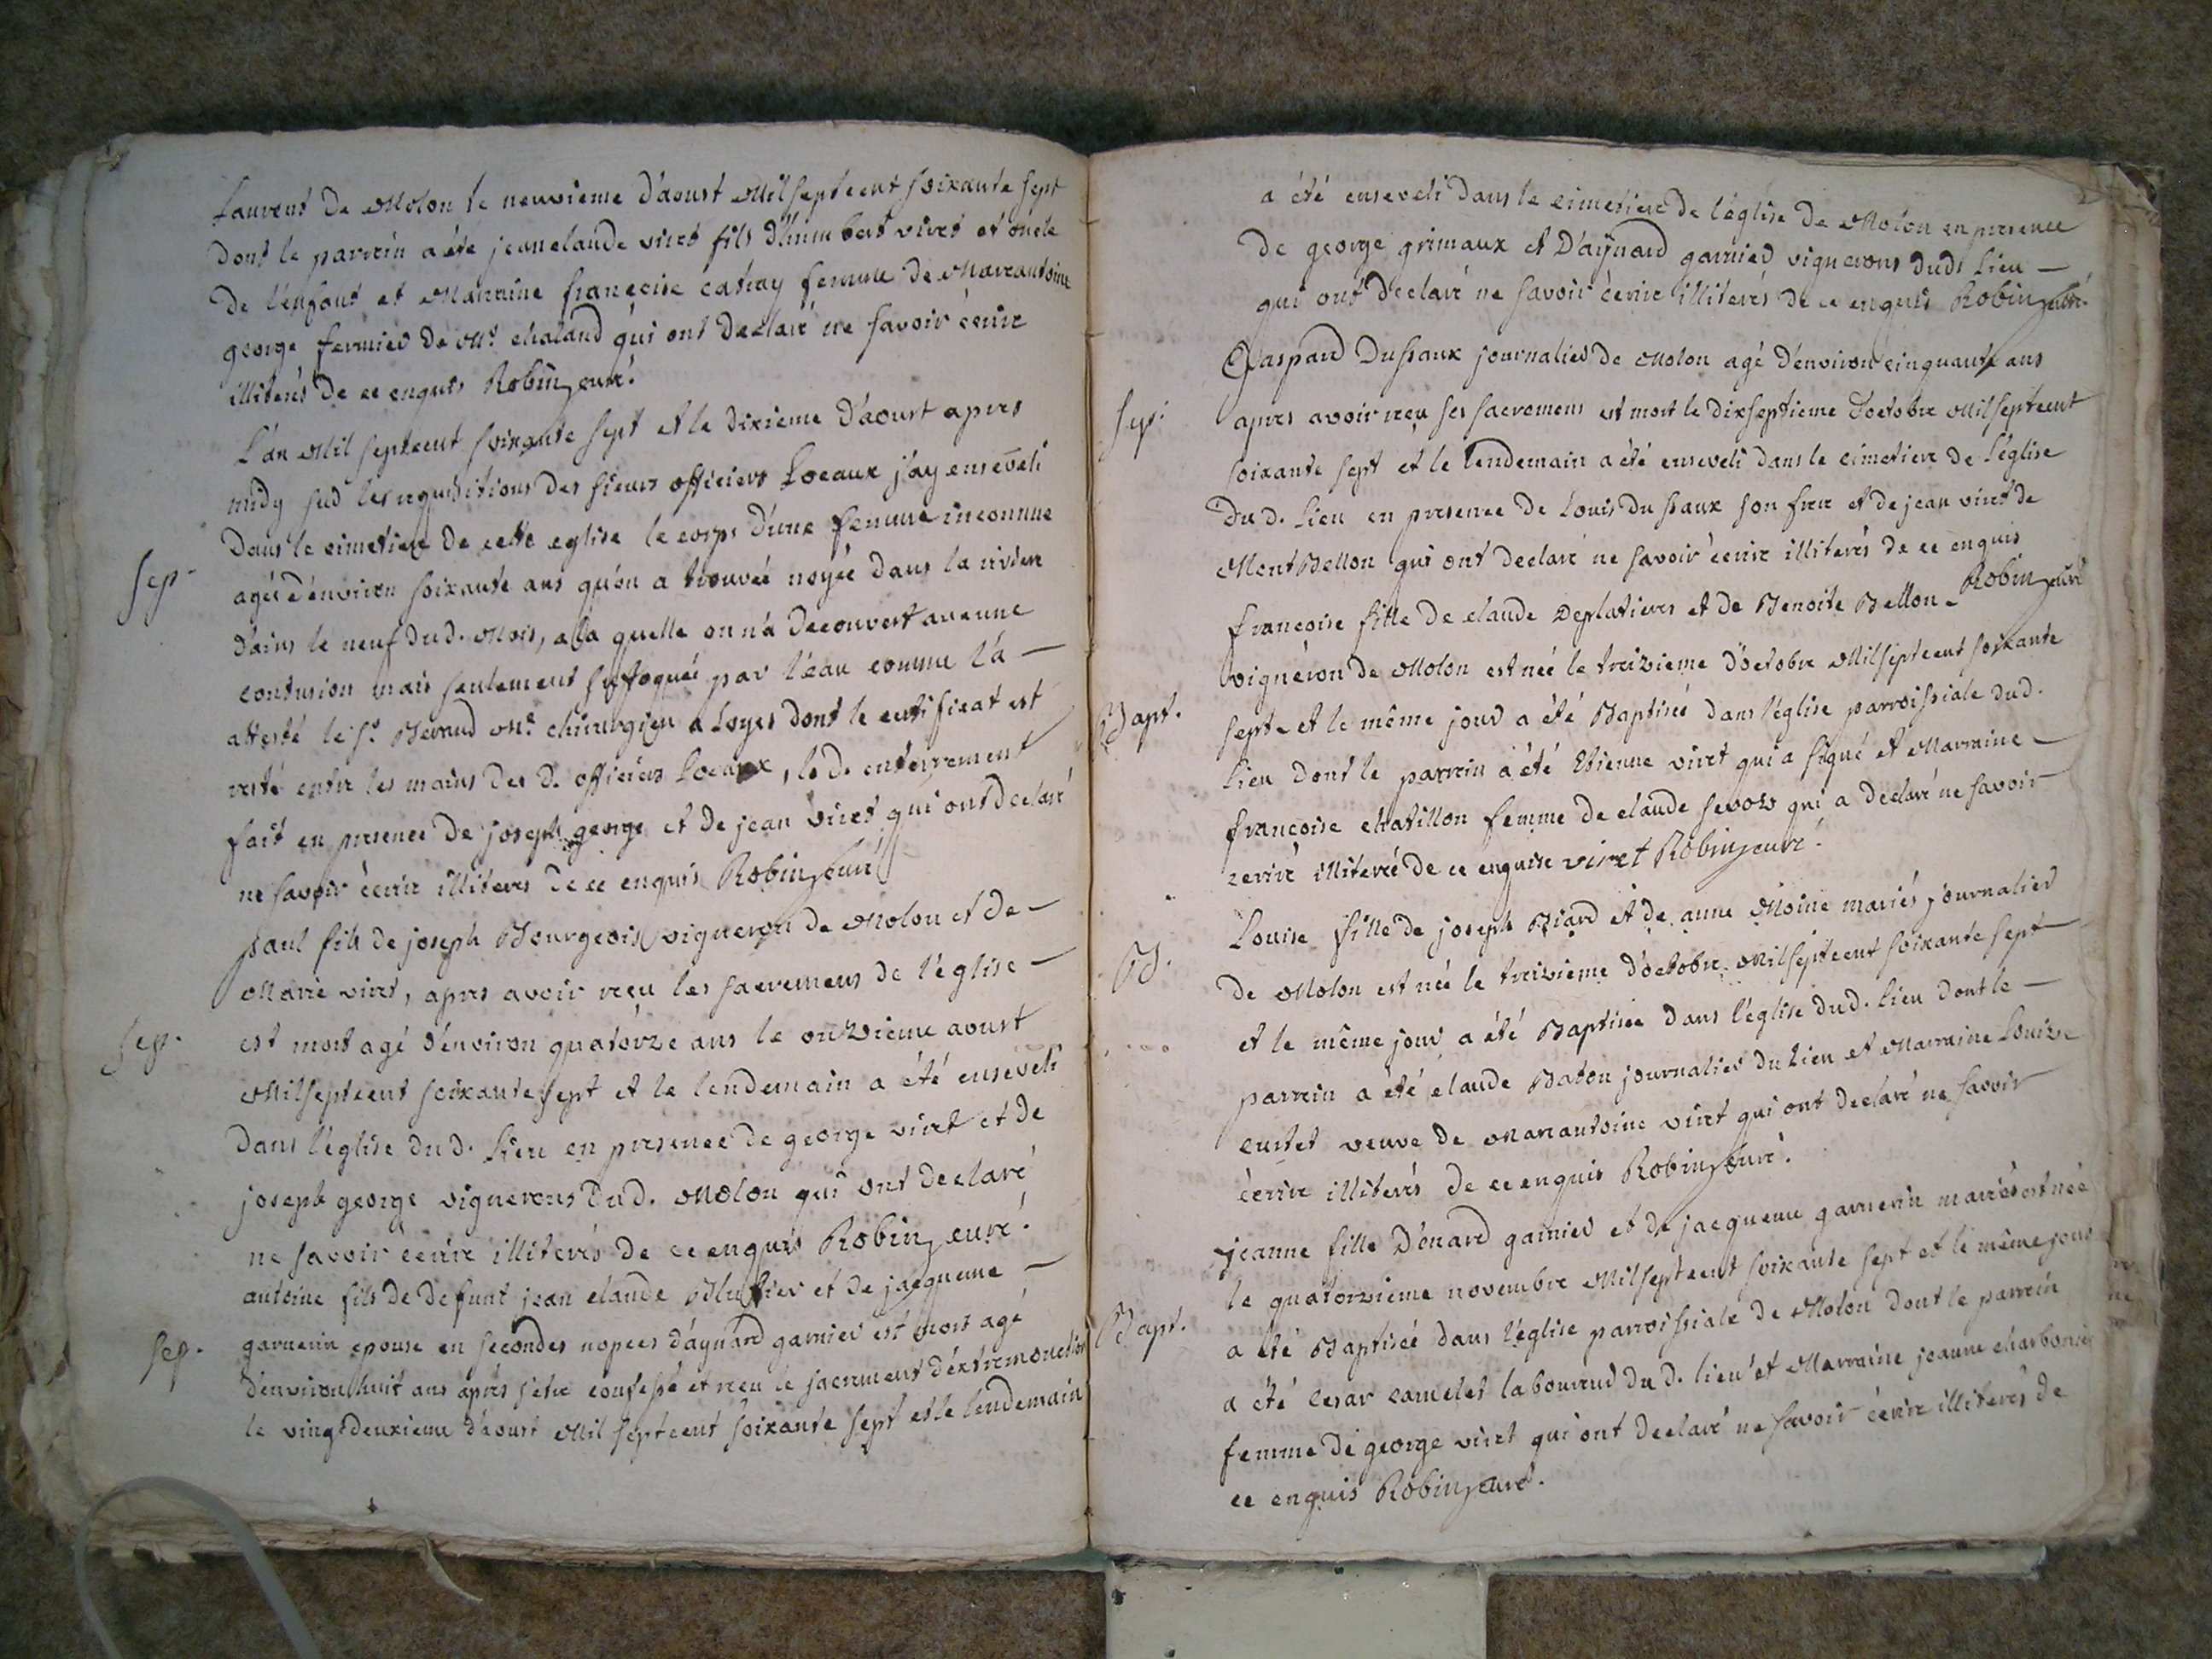 Laurent de Molon le neuvieme d'aoust Mil septcent soixante sept
dont le parrein a été jeanclaude viret fils d'humbert viret et oncle
de l'enfant et Marraine françoise catray femme de Marcantoine
george fermier de Mr. chaland qui ont declaré ne savoir écrire
illiterés de ce enquis Robin curé.
L'an Mil septcent soixante sept et le dixieme d'aoust apres
midy sur les requisitions des sieurs officiers Locaux j'ay enseveli
dans le cimetiere de cette eglise le corps d'une femme inconnue
sep.
agée d'environ soixante ans qu'on a trouvée noyée dans la riviere
d'ains le neuf dud. Mois, a la quelle on n'a decouvert aucune
contusion mais seulement suffoquée par l'eau comme l'a
attesté le Sr. Beraud Me. chirurgien a Loyes dont le certificat est
resté entre les mains des d. officiers Locaux, le d. enterrement
fait en presence de joseph george et de jean viret qui ont declaré
ne savoir écrire illiterés de ce enquis Robin curé
paul fils de joseph Bourgeois vigneron de Molon et de
Marie viret, apres avoir reçu les sacremens de l'église
sep.
est mort agé d'environ quatorze ans le onzieme aoust
Milseptcent soixante sept et le lendemain a été enseveli
dans l'église dud. Lieu en presence de george viret et de
joseph george vignerons dud. Molon qui ont declaré
ne savoir écrire illiterés de ce enquis Robin curé.
antoine fils de defunt jean claude et de jacqueme
garnerin epouse en secondes nopces d'aynard garnier est mort agé
sep.
d'environ huit ans après s'etre confessé et reçu le sacrement d'extremonction
le vingtdeuxieme d'aoust Mil septcent soixante sept et le lendemain
a été enseveli dans le cimetiere de l'église de Molon en presence
de george grimaux et D'aÿnard garnier vignerons dudt Lieu
qui ont declaré ne savoir écrire illiterés de ce enquis Robin curé.
Gaspard Dussaux journalier de Molon agé d'environ cinquante ans
sep.
apres avoir reçu ses sacremens est mort le dixseptieme d'octobre Milseptcent
soixante sept et le lendemain a été enseveli dans le cimetiere de l'église
du d. Lieu en presence de Louis Dussaux son frere et de jean viret de
MontBellon qui ont declaré ne savoir écrire illiterés de ce enquis
Robin curé
françoise fille de claude Deplatieres et de Benoite Bellon
vignéron de Molon est née le treizieme d'octobre Milseptcent soixante
Bapt.
sept et le même jour a été Baptisée dans l'église parroissiale dud.
Lieu dont le parrein a été Etienne viret qui a signé et Marraine
françoise chatillon femme de claude qui a declaré ne savoir
ecrire illiterée de ce enquise viret Robin curé.
Louise fille de joseph Biard et de anne Moine mariés journalier
B.
de Molon est née le treizieme d'octobre Milseptcent soixante sept
et le même jour a été Baptisée dans l'église dud. Lieu dont le
parrein a été claude Baton journalier du Lieu et Marraine Louize
veuve de Marcantoine viret qui ont declaré ne savoir
écrire illiterés de ce enquis Robin curé.
jeanne fille D'énard garnier et de jacqueme garnerin mariés est née
le quatorzieme novembre Milseptcent soixante sept et le même jour
Bapt.
a été Baptisée dans l'église parroissiale de Molon dont le parrein
a été Cesar Camelet laboureur du d. lieu et Marraine jeanne charbonier
femme de george viret qui ont declaré ne savoir écrire illiterés de
ce enquis Robin curé.